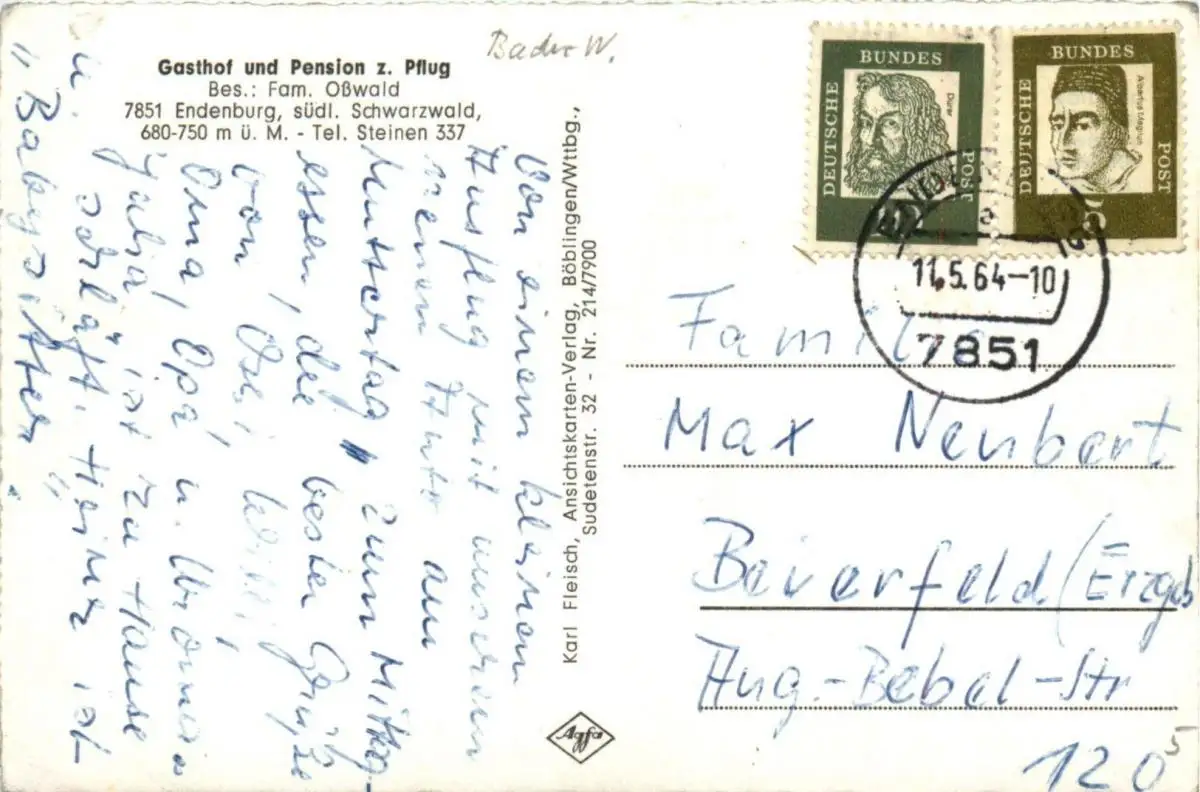 Bader W.
Gasthof und Pension z. Pflug
Bes.: Fam. Oßwald
7851 Endenburg, südl. Schwarzwald,
680-750 m ü. M. - Tel. Steinen 337
Von einem kleinen
Ausflug mit unserem
neuen Auto am
Muttertag zum Mittag-
essen, die besten Grüße
von Ose, Willi,
Oma, Opa u.
Jutta ist zu Hause
u. schläft. Heinz ist
"Babysitter"
Karl Fleisch, Ansichtskarten-Verlag, Böblingen/Wttbg.,
Sudetenstr. 32 - Nr. 214/7900
Agfa
DEUTSCHE BUNDES POST
Dürer
DEUTSCHE BUNDES POST
Albertus Magnus
5
11.5.64-10
7851
Familie
Max Neubert
Beierfeld (Erzgeb
Aug.-Bebel-Str
120
5